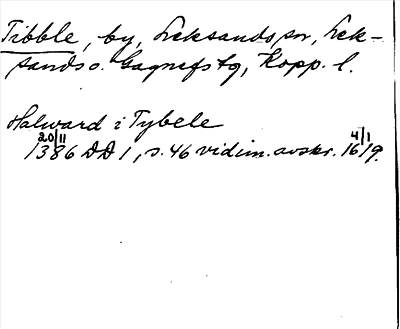 Tibble, by, Leksands sn, Lek-
sands o. Gagnefs tg, Kopp. l.
Halward i Tybele
20/11 1386 DD 1, s. 46 vidim. avskr. 4/1 1619.